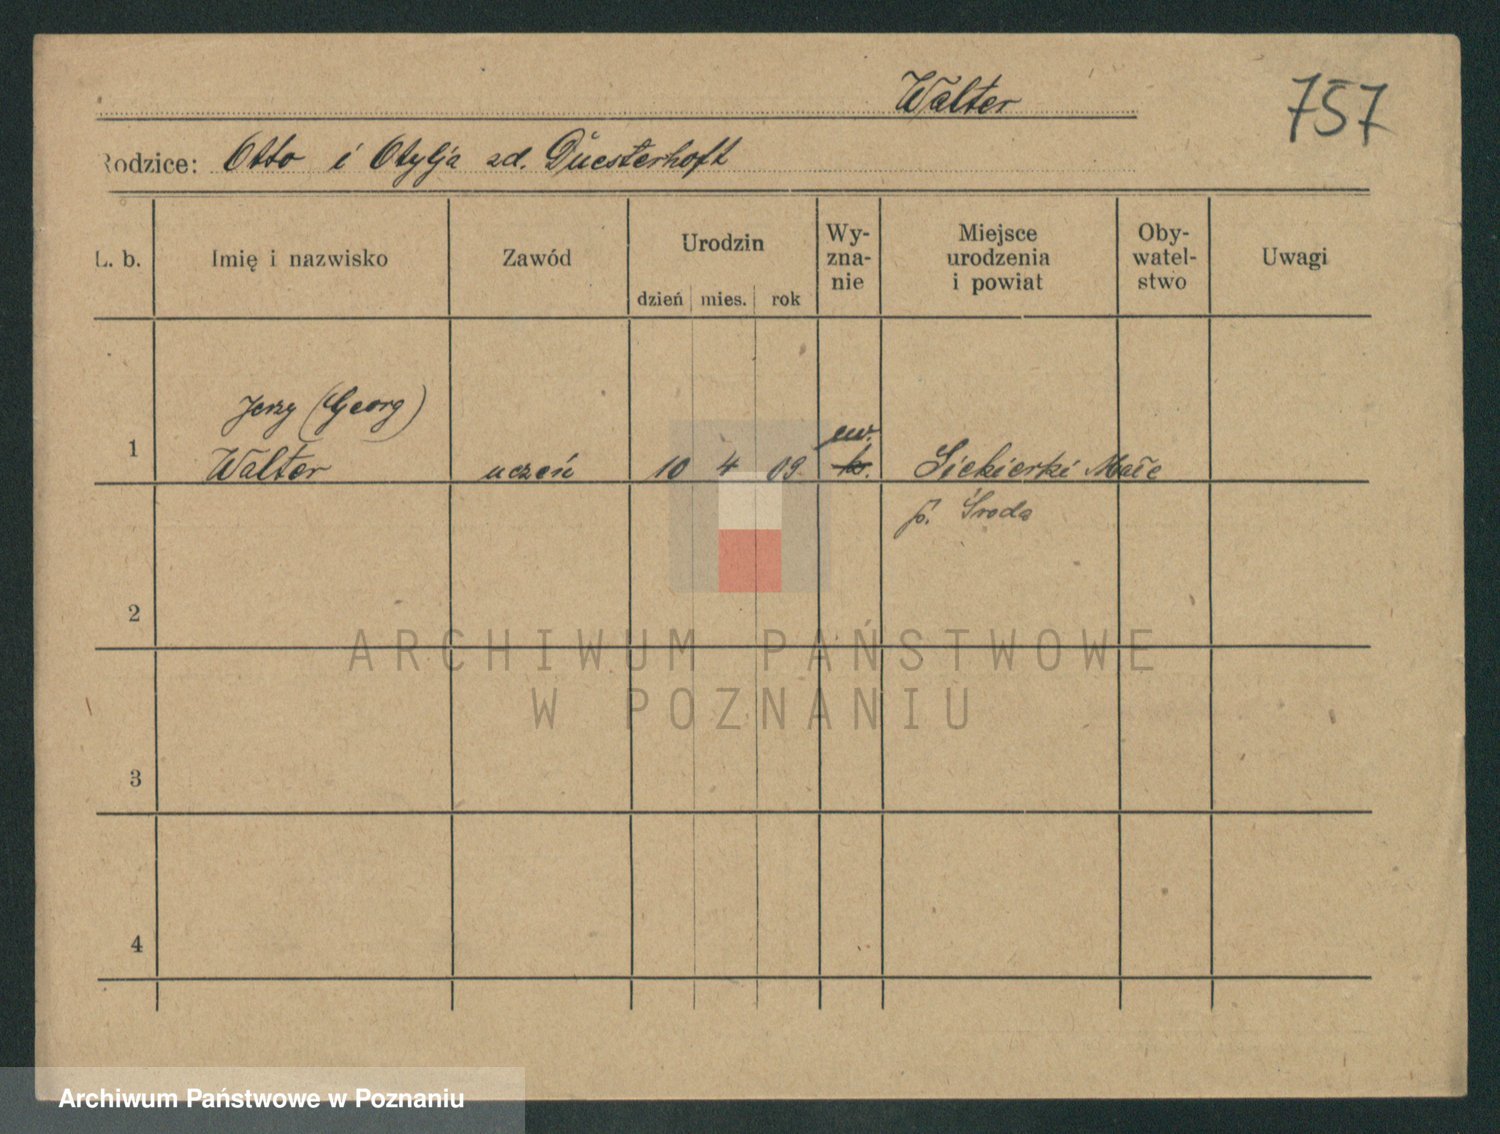 Walter
757
Rodzice: Otto i Otylja zd. Duesterhoft
L. b. Imię i nazwisko Zawód Urodzin dzień mies. rok Wy-zna-nie Miejsce urodzenia i powiat Oby-watel-stwo Uwagi
Jerzy (Georg)
ew.
1 Walter uczeń 10 4 09 k. Siekierki Małe
p. Środa
2
3
4
ARCHIWUM PAŃSTWOWE
W POZNANIU
Archiwum Państwowe w Poznaniu